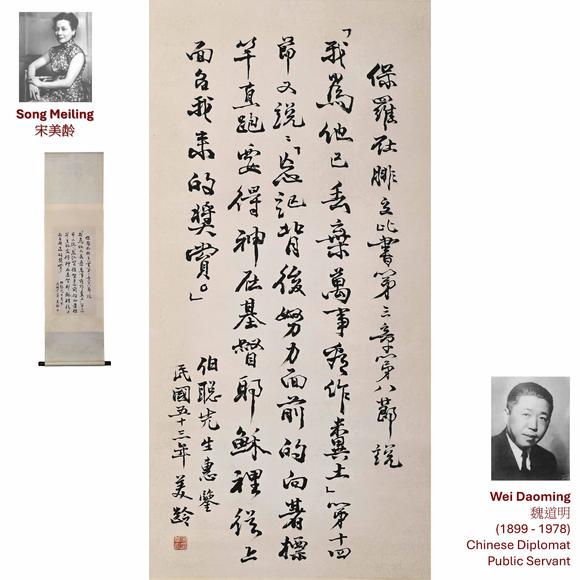 Song Meiling
宋美龄
保羅在腓立比書第三章第八節說
「我為他已丟棄萬事看作糞土」第十四
節又說：「忘記背後努力面前的向著標
竿直跑要得神在基督耶穌裡從上
面召我來的獎賞。」
伯聰先生惠鑒
民國五十三年 美齡
Wei Daoming
魏道明
(1899 - 1978)
Chinese Diplomat
Public Servant